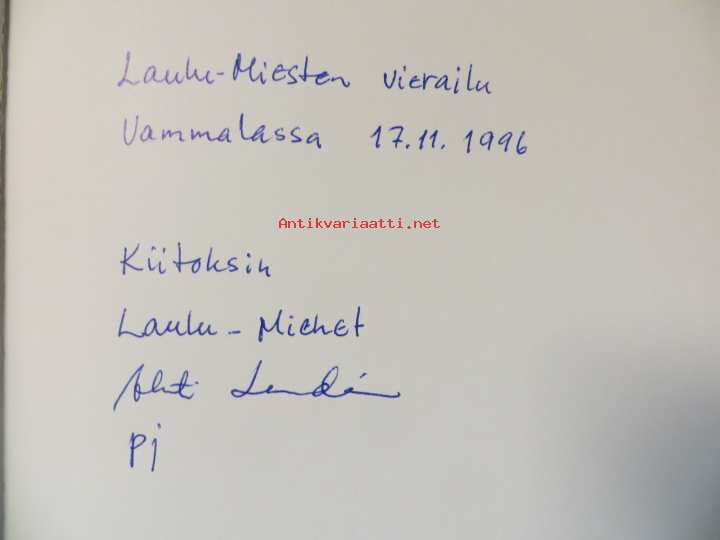 Laulu-Miesten vierailu
Vammalassa 17.11.1996
Antikvariaatti.net
Kiitoksin
Laulu-Miehet
Ahti
pj